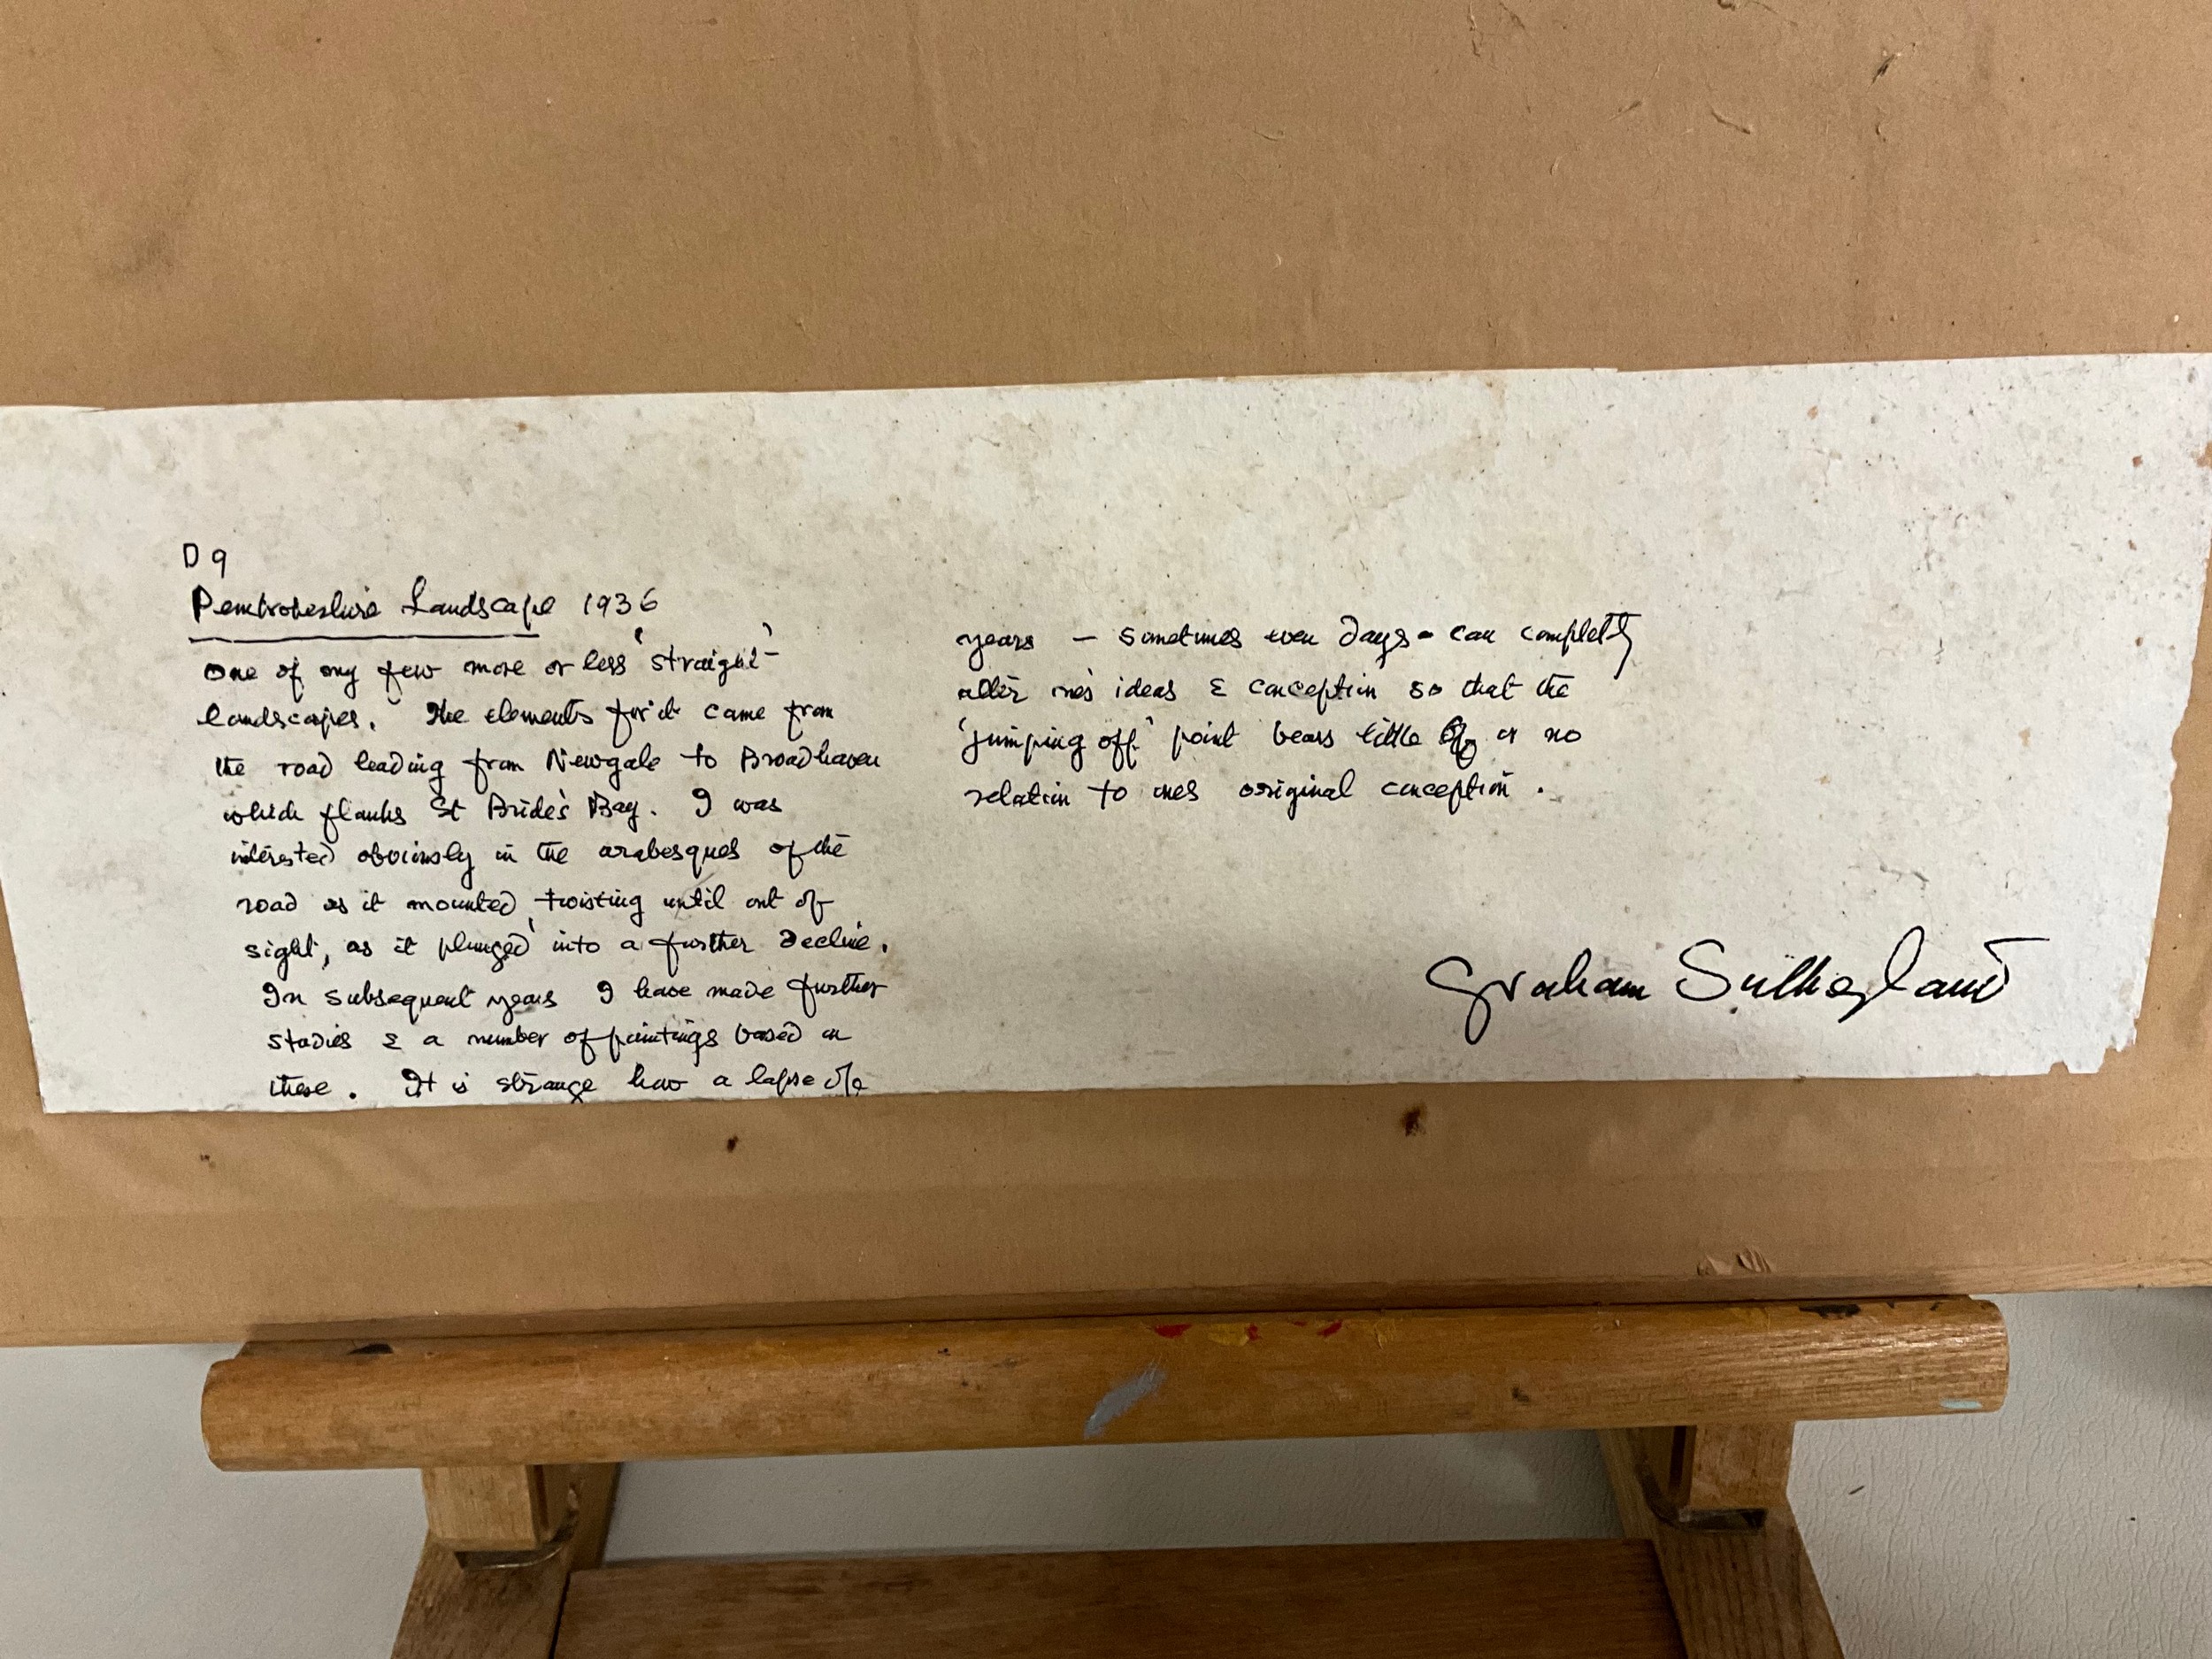 D 9
Pembrokeshire Landscape 1936
One of my few more or less 'straight'
landscapes. The elements for it came from
the road leading from Newgale to Broadhaven
which flanks St Bride's Bay. I was
interested obviously in the arabesques of the
road as it mounted, twisting until out of
sight, as it plunged into a further decline.
In subsequent years I have made further
studies & a number of paintings based on
these. It is strange how a lapse of
years – sometimes even days – can completly
alter one's ideas & conception so that the
'jumping off' point bears little or no
relation to ones original conception.
Graham Sutherland